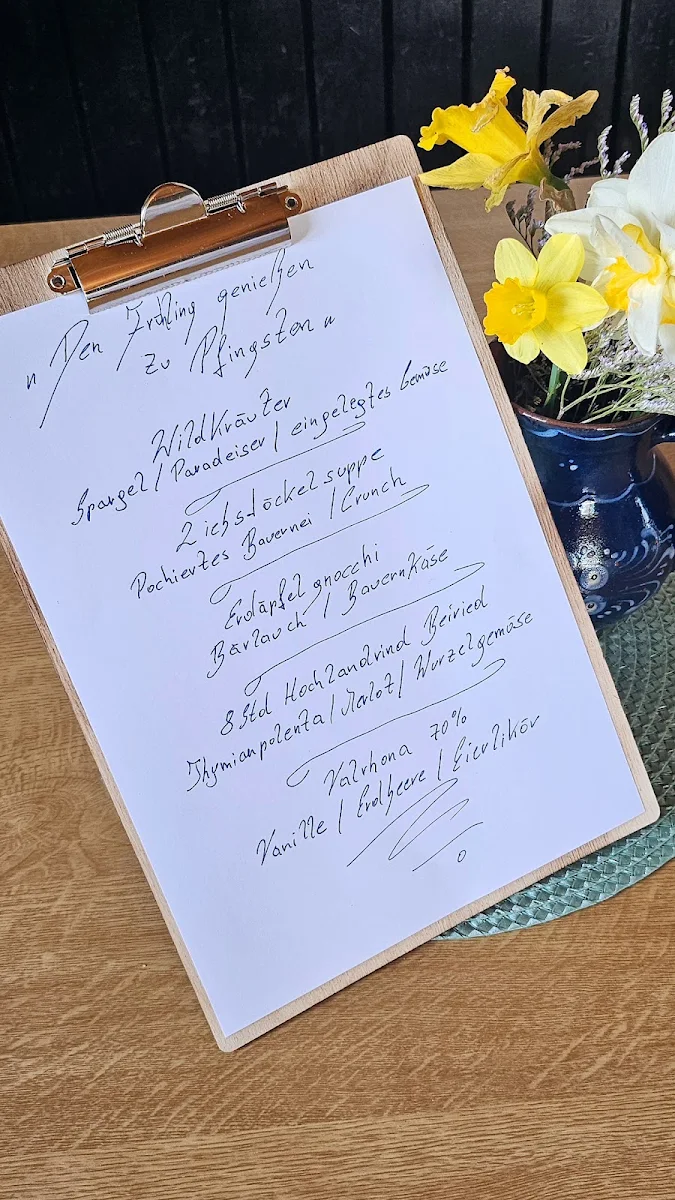 „Den Frühling genießen
zu Pfingsten"
Wildkräuter
Spargel / Paradeiser / eingelegtes Gemüse
Liebstöckelsuppe
Pochiertes Bauernei / Crunch
Erdäpfelgnocchi
Bärlauch / Bauernkäse
8 Std Hochlandrind Beiried
Thymianpolenta / Merlot / Wurzelgemüse
Valrhona 70%
Vanille / Erdbeere / Eierlikör